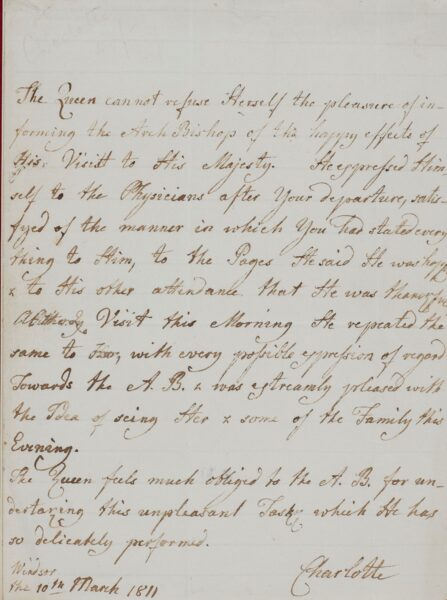 The Queen cannot refuse Herself the pleasure of in-
forming the Arch Bishop of the happy effects of
His Visitt to His Majesty. He expressed Him
self to the Physicians after Your departure, satis-
fyed of the manner in which You had stated every
thing to Him, to the Pages He said He was happy
& to His other attendance that He was thankfull
Visit this Morning He repeated the
same to , with every possible expression of regard
Towards the A. B. & was extreamly pleased with
the Idea of seing Her & some of the Family this
Evening.
The Queen feels much obliged to the A. B. for un-
dertaking this unpleasant Task, which He has
so delicately performed.
Windsor
the 10th March 1811
Charlotte